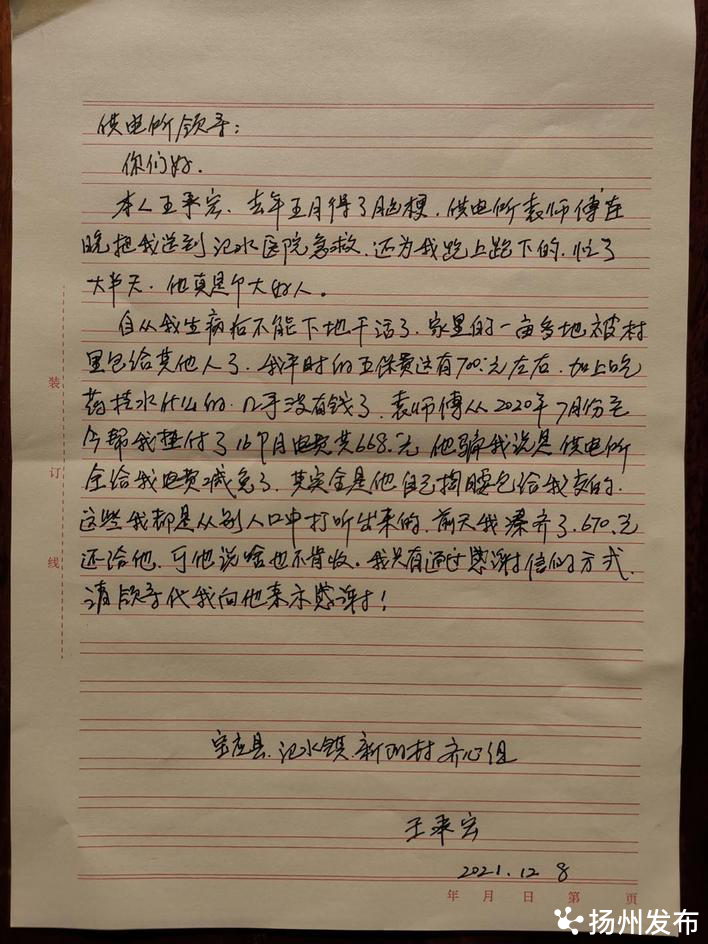 供电所领导：
你们好.
本人王来宏、去年五月得了脑梗，供电所袁师傅在
晚把我送到氾水医院急救、还为我跑上跑下的、忙了
大半天、他真是个大好人。
自从我生病后不能下地干活了、家里的一亩多地被村
里包给其他人了、我平时的五保费还有700元左右、加上吃
药挂水什么的、几乎没有钱了、袁师傅从2020年7月份至
今帮我垫付了16个月电费共668.元、他骗我说是供电所
全给我电费减免了、其实全是他自己掏腰包给我交的、
这些我都是从别人口中打听出来的、前天我凑齐了.670.元
还给他、可他说啥也不肯收。我只有通过感谢信的方式、
请领导代我向他表示感谢！
宝应县.氾水镇.新河村齐心组
王来宏
2021.12 8
年 月 日 第 页
装
订
线
扬州发布